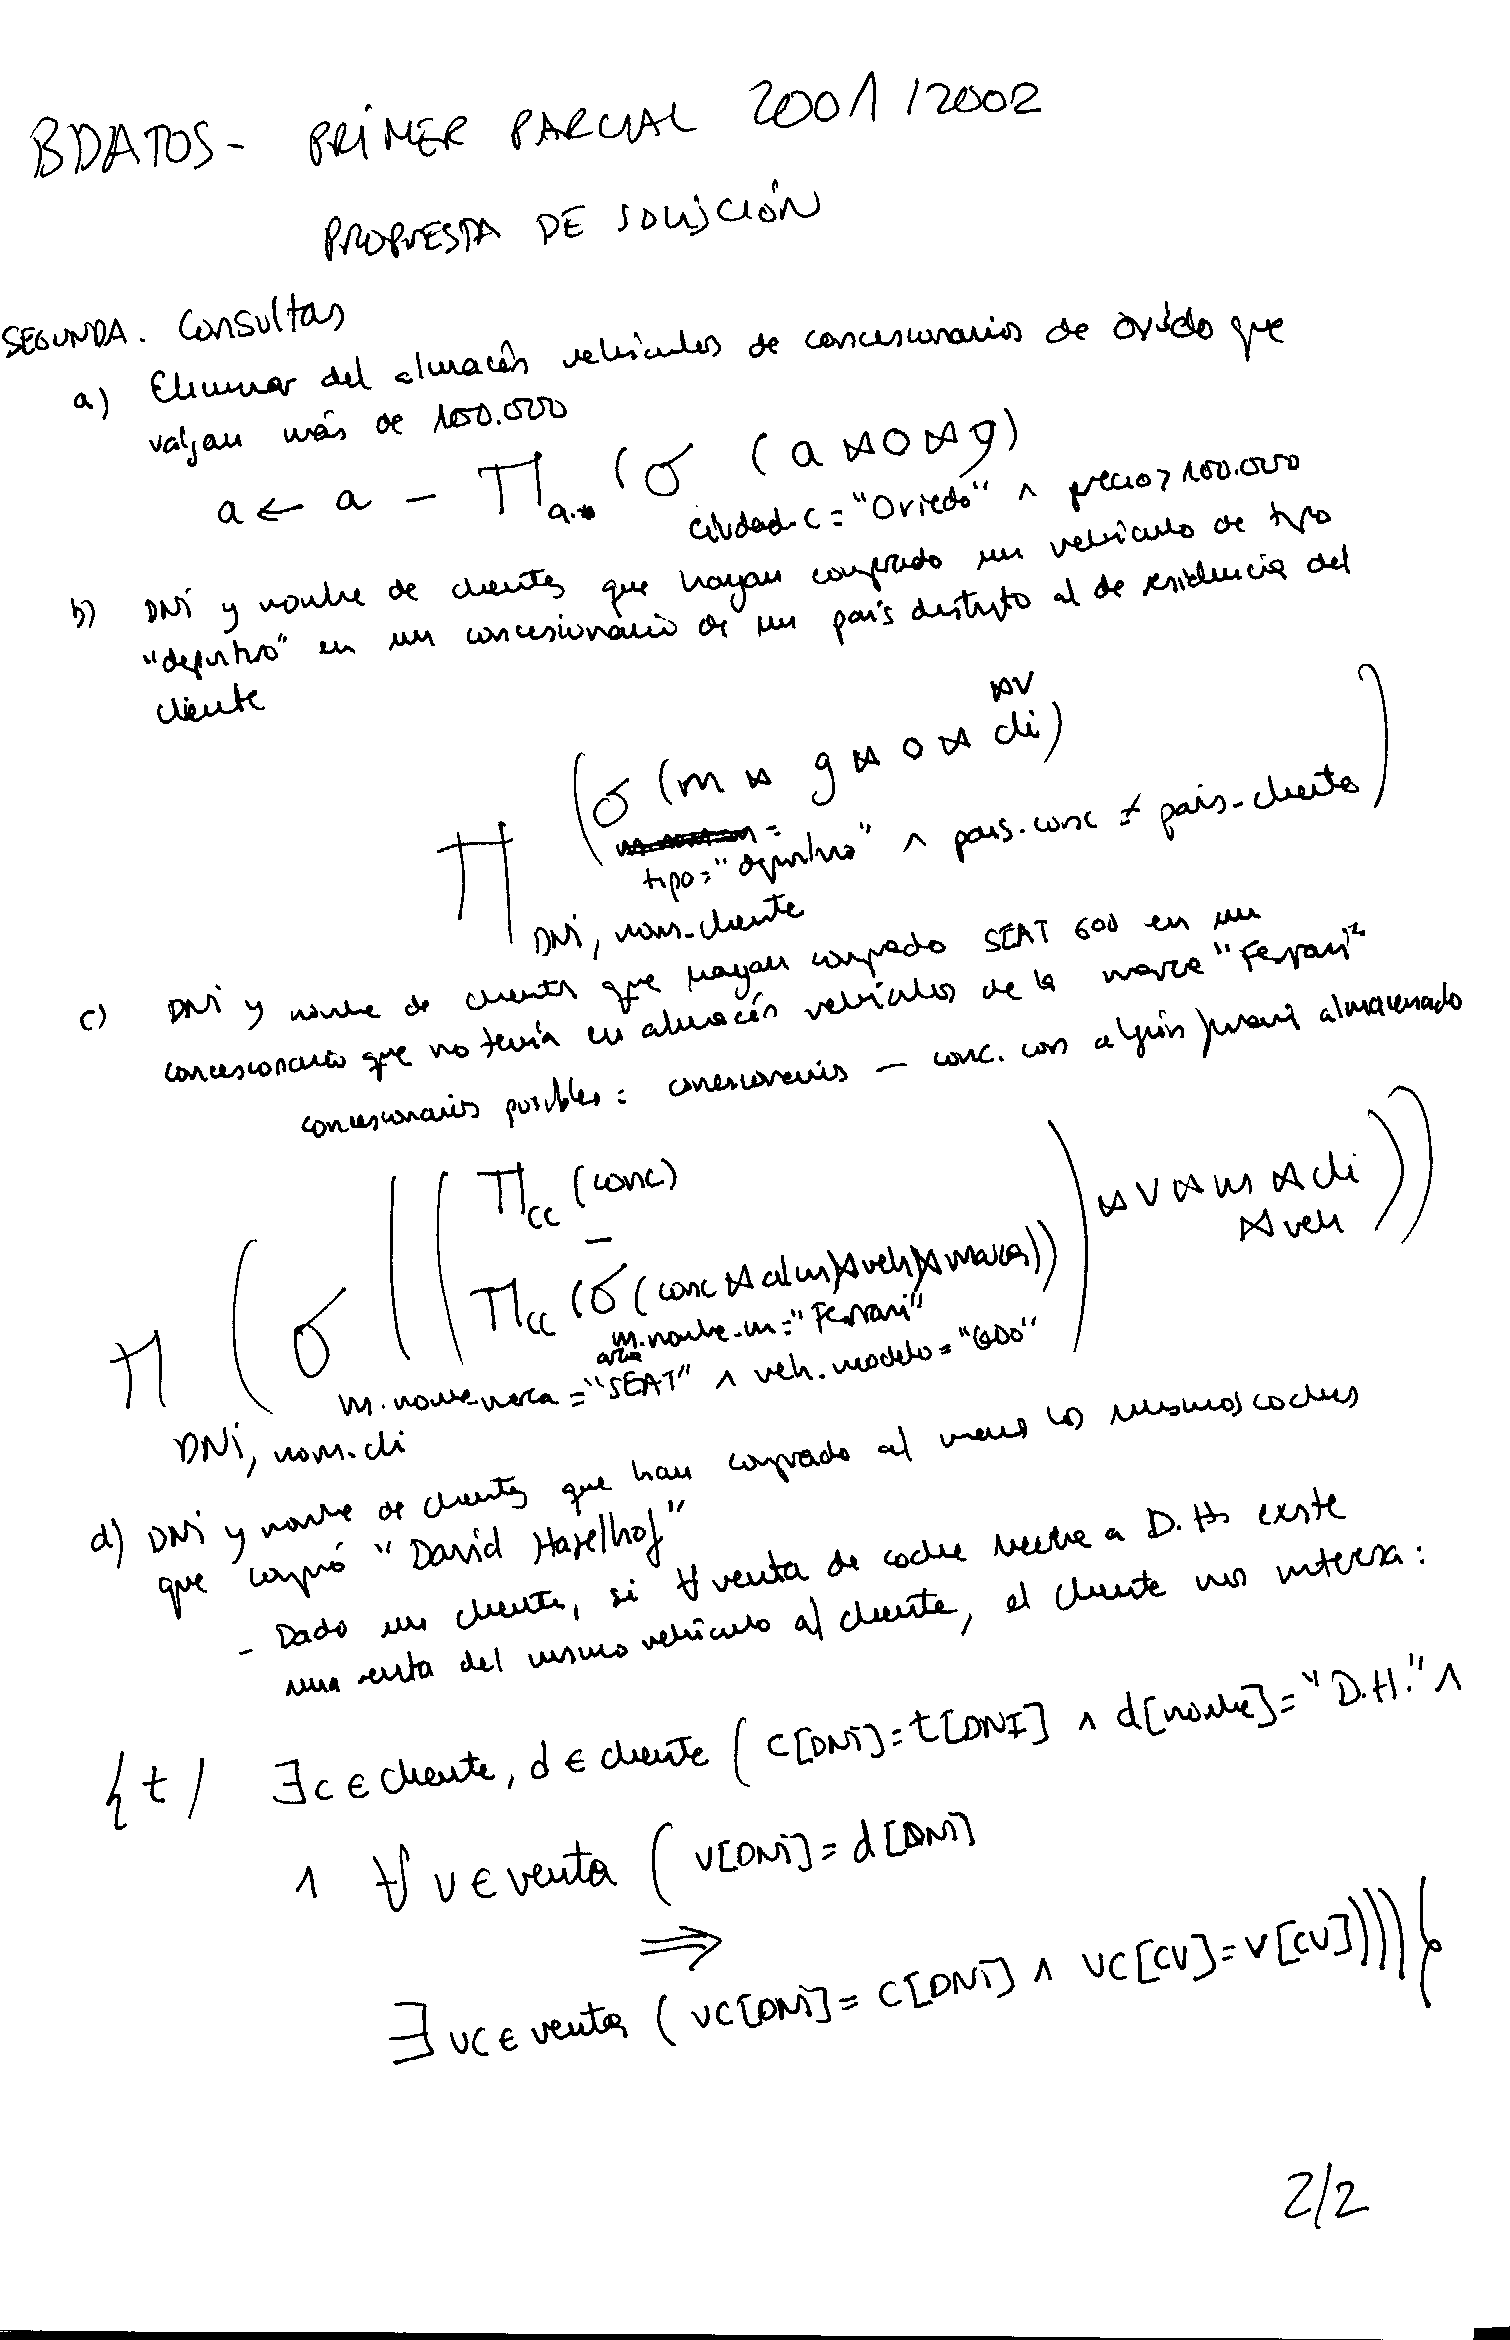 BDATOS - PRIMER PARCIAL 2001/2002
PROPUESTA DE SOLUCIÓN
SEGUNDA. Consultas
a) Eliminar del almacén vehículos de concesionarios de Oviedo que
valgan más de 100.000
a ← a - Π a.* (σ (a ⋈ o ⋈ g)
ciudad.c = "Oviedo" ∧ precio > 100.000
b) DNI y nombre de clientes que hayan comprado un vehículo de tipo
"deportivo" en un concesionario de un país distinto al de residencia del
cliente
⋈ v
(σ (m ⋈ g ⋈ o ⋈ cli) )
Π tipo = "deportivo" ∧ pais.conc ≠ pais_cliente
DNI, nom_cliente
c) DNI y nombre de clientes que hayan comprado SEAT 600 en un
concesionario que no tenía en almacén vehículos de la marca "Ferrari"
concesionarios posibles = concesionarios - conc. con algún ferrari almacenado
Π cc (conc)
-
⋈ v ⋈ m ⋈ cli ))
⋈ veh
Π cc (σ (conc ⋈ alm ⋈ veh ⋈ marca))
m.nombre_m = "Ferrari"
Π ( σ ( (
m.nombre marca = "SEAT" ∧ veh.modelo = "600"
DNI, nom.cli
d) DNI y nombre de clientes que han comprado al menos los mismos coches
que compró "David Haselhof"
- Dado un cliente, si ∀ venta de coche hecha a D.H. existe
una venta del mismo vehículo al cliente, el cliente nos interesa:
{t / ∃c ∈ cliente, d ∈ cliente ( c[DNI] = t[DNI] ∧ d[nombre] = "D.H." ∧
∧ ∀ v ∈ venta ( v[DNI] = d[DNI]
⇒
∃ vc ∈ venta ( vc[DNI] = c[DNI] ∧ vc[cv] = v[cv]))))}
2/2